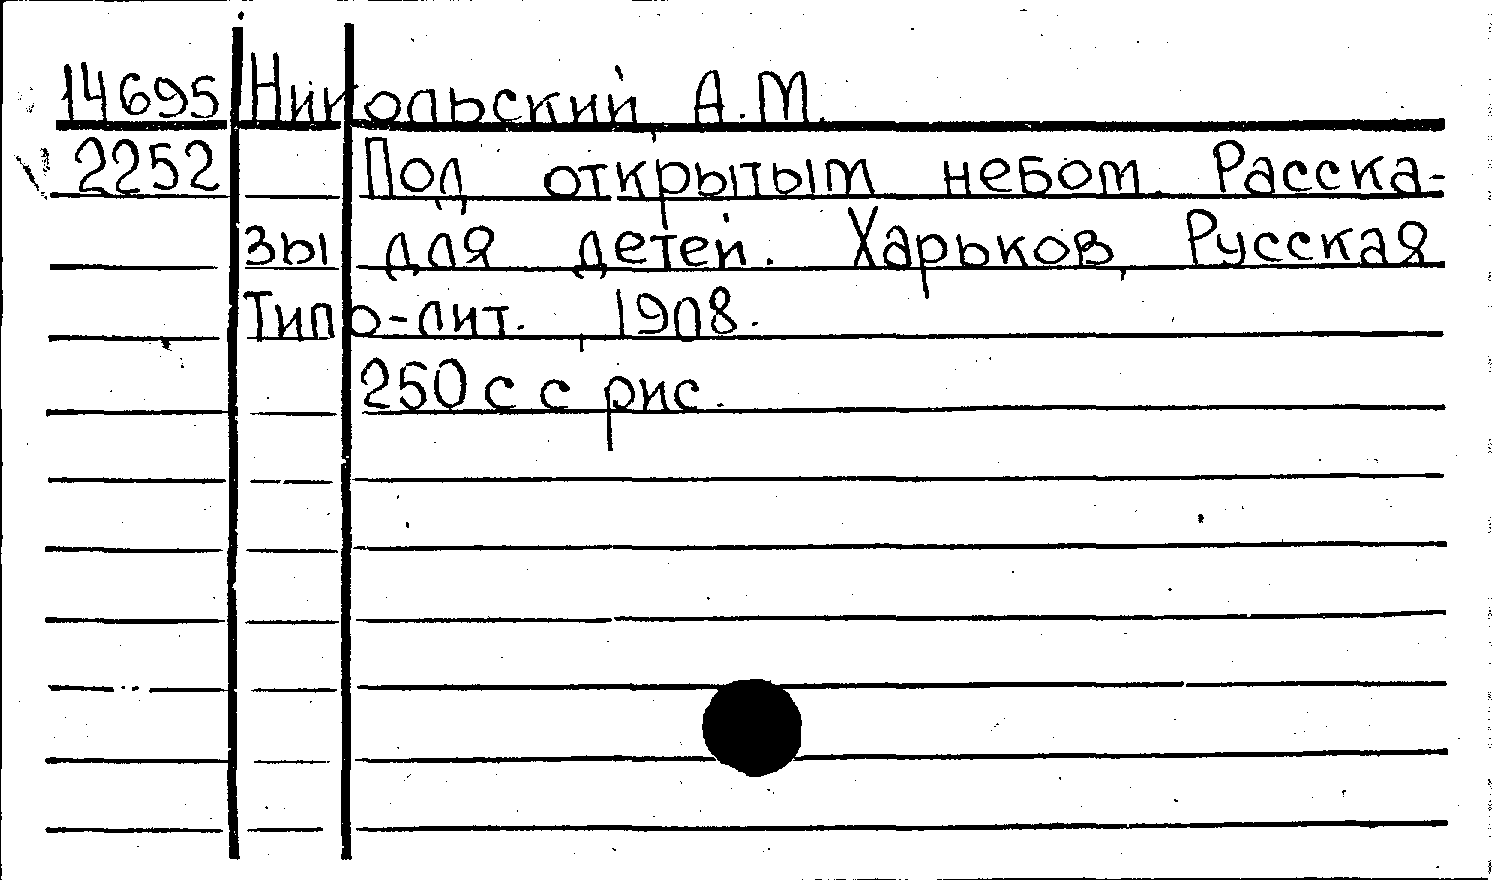 14695 Никольский, А.М.
2252 Под открытым небом. Расска-
зы для детей. Харьков, Русская
Типо-лит., 1908.
250 с с рис.